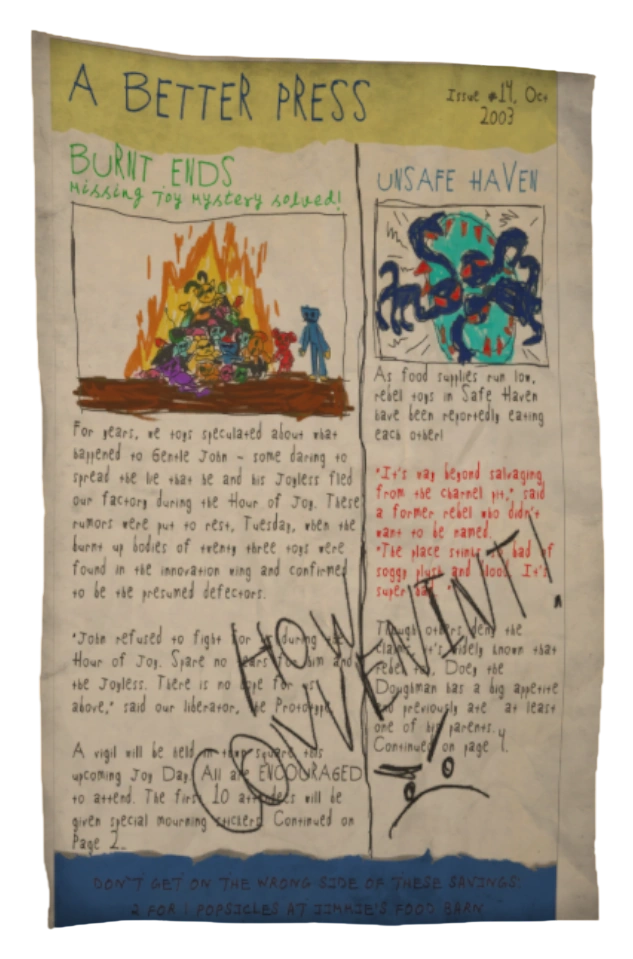 A BETTER PRESS
Issue #14, Oct
2003
BURNT ENDS
Missing Toy Mystery solved!
For years, we toys speculated about what
happened to Gentle John - some daring to
spread the lie that he and his Joyless fled
our factory during the Hour of Joy. These
rumors were put to rest, Tuesday, when the
burnt up bodies of twenty three toys were
found in the innovation wing and confirmed
to be the presumed defectors.
"John refused to fight for us during the
Hour of Joy. Spare no tears for him and
the Joyless. There is no hope for us
above," said our liberator, the Prototype.
A vigil will be held in town square this
upcoming Joy Day. All are ENCOURAGED
to attend. The first 10 attendees will be
given special mourning stickers. Continued on
Page 2.
UNSAFE HAVEN
As food supplies run low,
rebel toys in Safe Haven
have been reportedly eating
each other!
"It's way beyond salvaging
from the charnel pit," said
a former rebel who didn't
want to be named.
"The place stinks so bad of
soggy plush and blood. It's
super bad."
Though others deny the
claims, it's widely known that
rebel Doey the
Doughman has a big appetite
and previously ate at least
one of his parents.
Continued on page
HOW
CONVENIENT!
DON'T GET ON THE WRONG SIDE OF THESE SAVINGS!
2 FOR 1 POPSICLES AT JIMMIE'S FOOD BARN